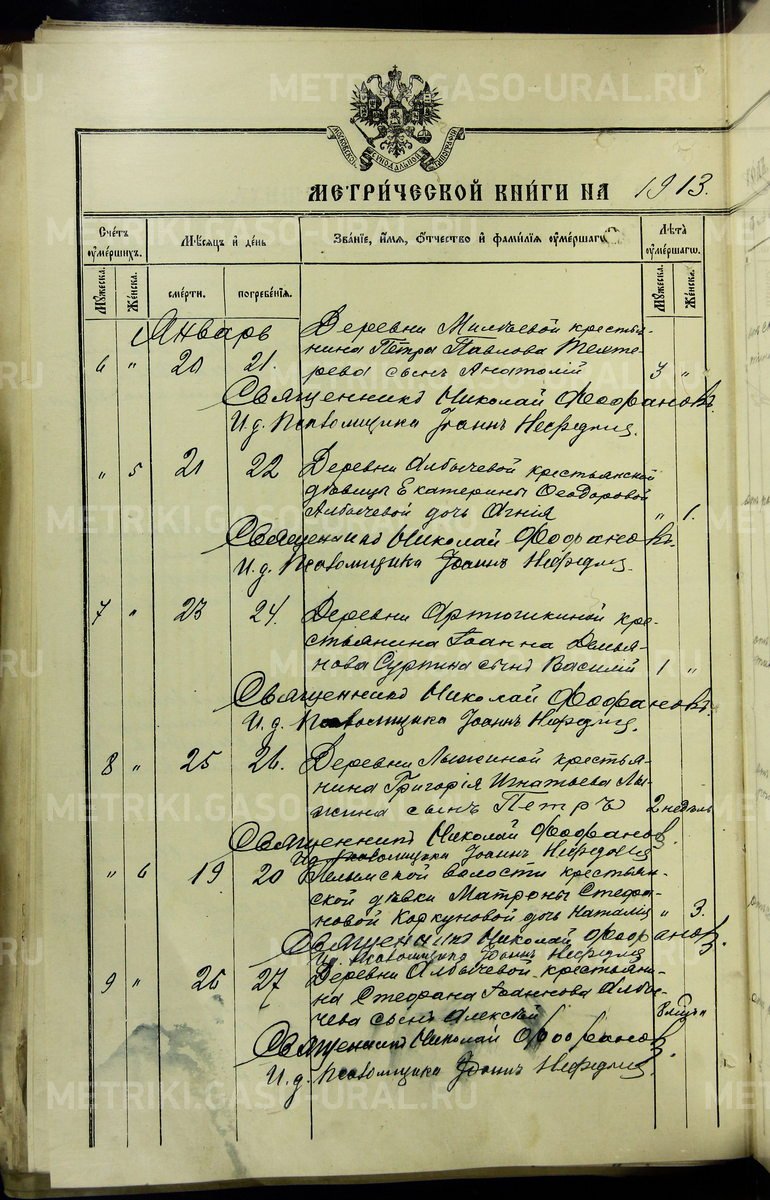 МЕТРИ́ЧЕСКОЙ КНИ́ГИ НА 1913.
Сче́тъ оуме́ршихъ.
Мѣсѧцъ и҆ де́нь
Зва́нїе, и҆́мѧ, ѻ҆́тчество и҆ фами́лїѧ оуме́ршагѡ
Лѣ́та оуме́ршагѡ.
Мꙋ́жеска.
Же́нска.
сме́рти.
погребе́нїѧ.
Мꙋ́жеска.
Же́нска.
Январь
Деревни крестья-
6 " 20 21. нина Петра Павлова Техте-
рева сынъ Анатолій 3 "
Священникъ Николай Феофановъ.
И. д. Псаломщика Іоаннъ
" 5 21 22 Деревни Албычевой крестьянской
дѣвицы Екатерины Ѳеодоровой
Албычевой дочь Агнія " 1.
Священникъ Николай Феофановъ.
И. д. Псаломщика Іоаннъ
7 " 23 24. Деревни Артюшкиной кре-
стьянина Іоанна Демья-
нова Суртина сынъ Василій 1 "
Священникъ Николай Феофановъ.
И. д. Псаломщика Іоаннъ
8 " 25 26. Деревни Лыжиной крестья-
нина Григорія Игнатьева Лы-
жина сынъ Петръ 2 недѣль
Священникъ Николай Феофановъ.
И. д. Псаломщика Іоаннъ
" 6 19 20 Пелымской волости крестьян-
ской дѣвки Матроны Стефа-
новой Коркуновой дочь Наталія " 3.
Священникъ Николай Феофановъ.
И. д. Псаломщика Іоаннъ
9 " 26 27 Деревни Албычевой крестьяни-
на Стефана Іоаннова Албы-
чева сынъ Алексѣй 8 "
Священникъ Николай Феофановъ.
И. д. Псаломщика Іоаннъ
METRIKI.GASO-URAL.RU